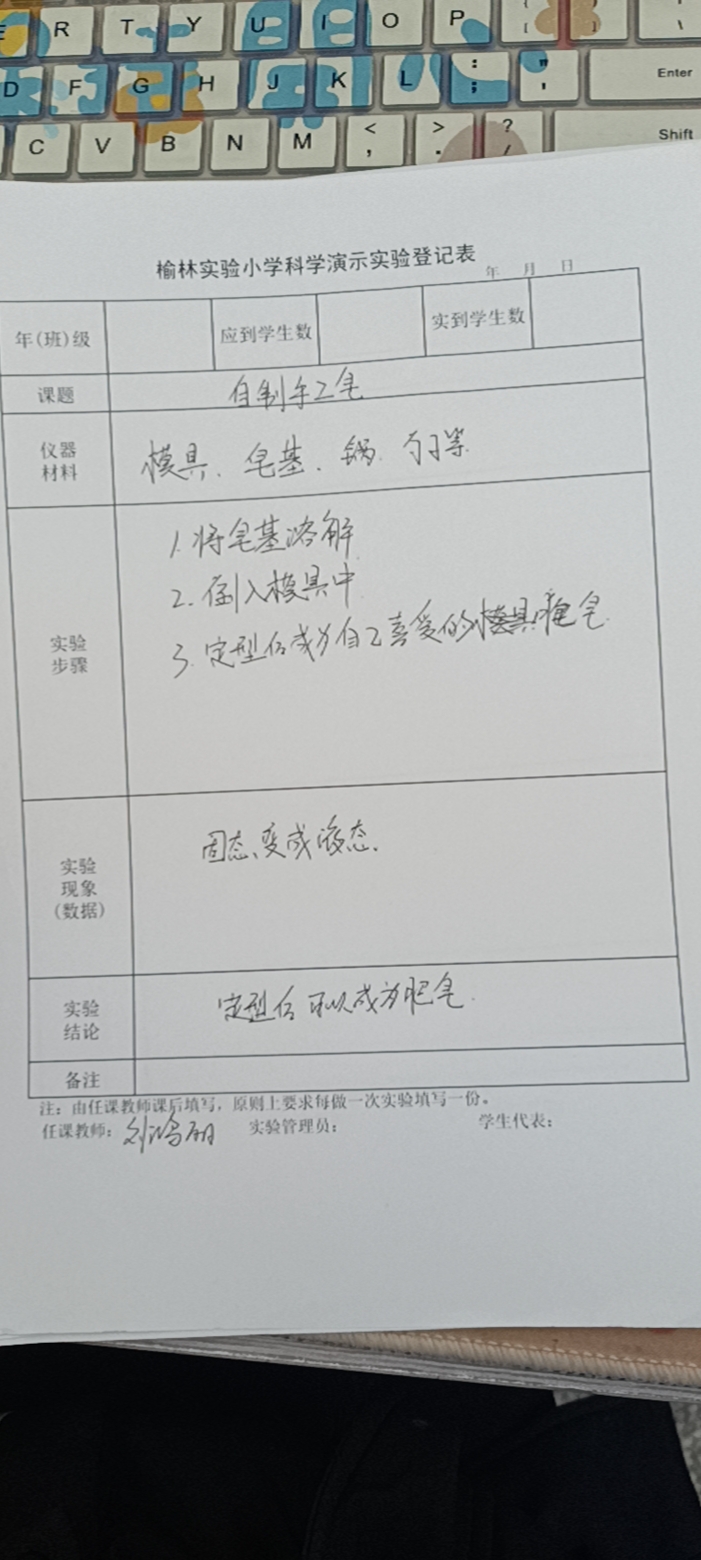 E R T Y U I O P { [ } ] | \
D F G H J K L : ; " ' Enter
C V B N M < , > . ? / Shift
榆林实验小学科学演示实验登记表
年 月 日
年(班)级 应到学生数 实到学生数
课题 自制手工皂
仪器
材料
模具、皂基、锅、勺子等
实验
步骤
1. 将皂基溶解
2. 倒入模具中
3. 定型后成为自己喜爱的 肥皂
实验
现象
(数据)
固态变成液态.
实验
结论
定型后可以成为肥皂.
备注
注:由任课教师课后填写,原则上要求每做一次实验填写一份。
任课教师: 实验管理员: 学生代表: